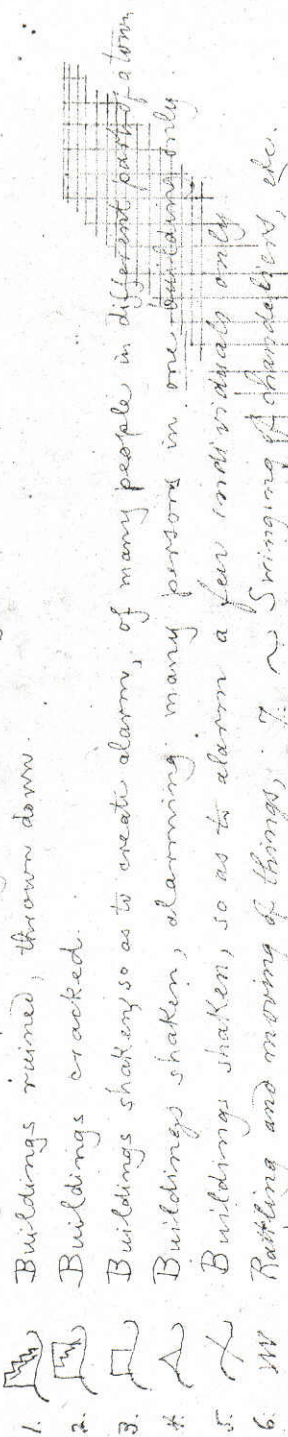 1. Buildings ruined, thrown down.
2. Buildings cracked.
3. Buildings shaken, so as to create alarm, of many people in different parts of a town
4. Buildings shaken, alarming many persons in one building only
5. Buildings shaken, so as to alarm a few individuals only
6. Rattling and moving of things, 7. Swinging of chandeliers, etc.